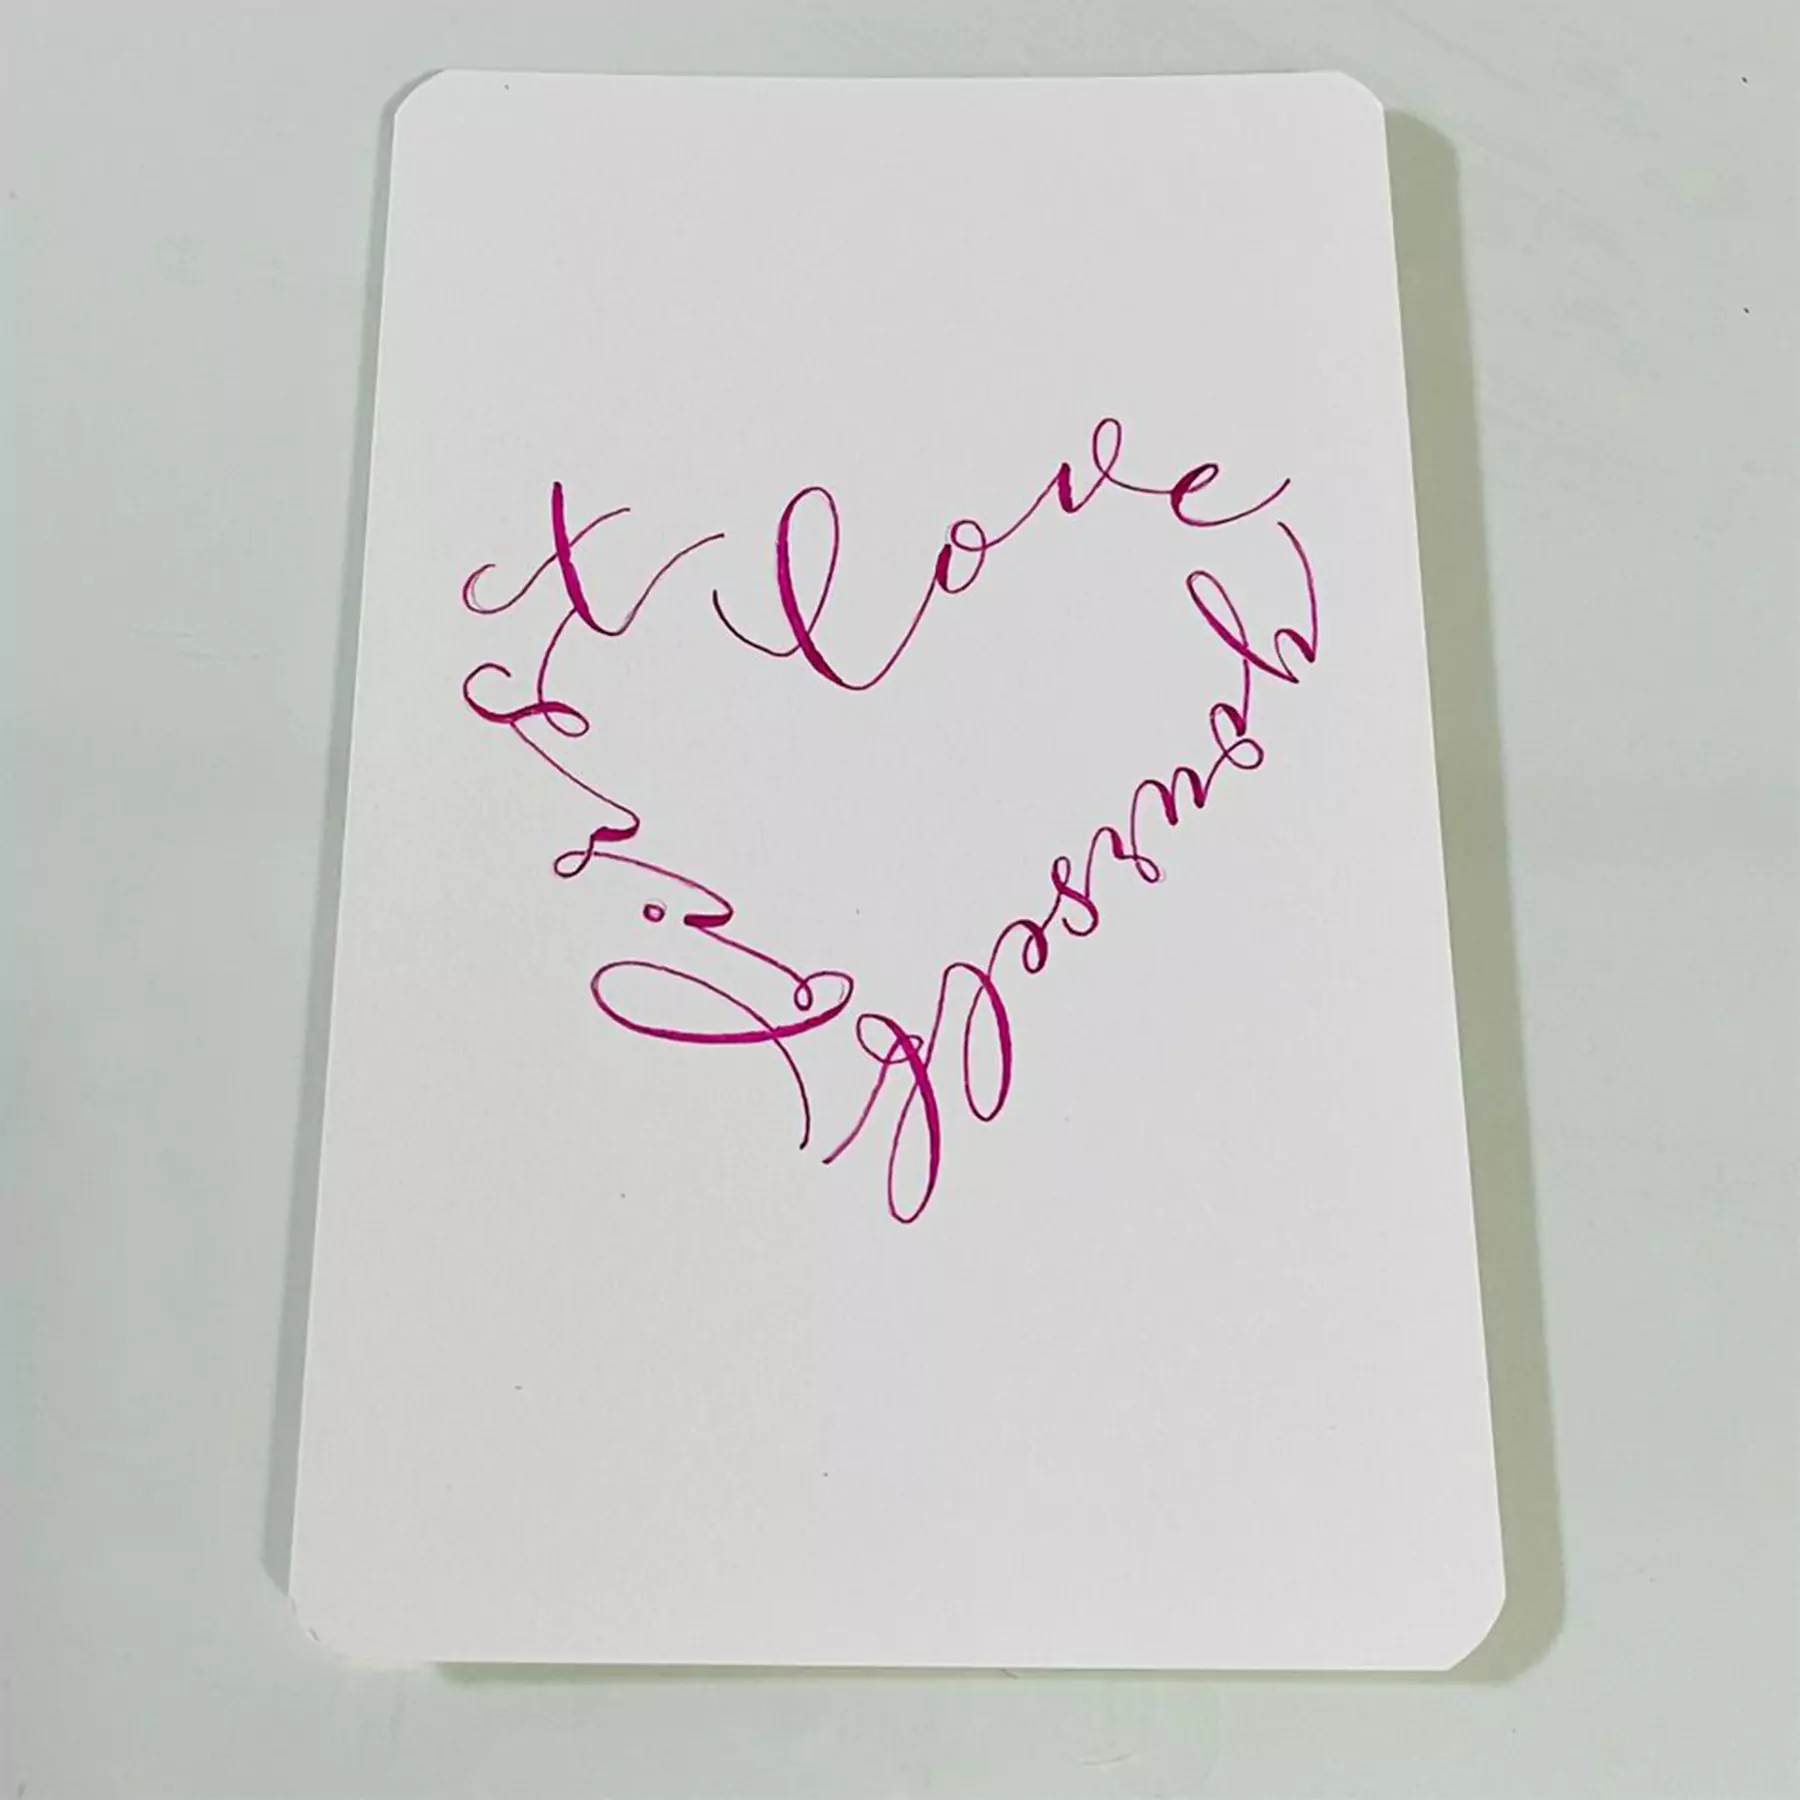 love
yourself
first